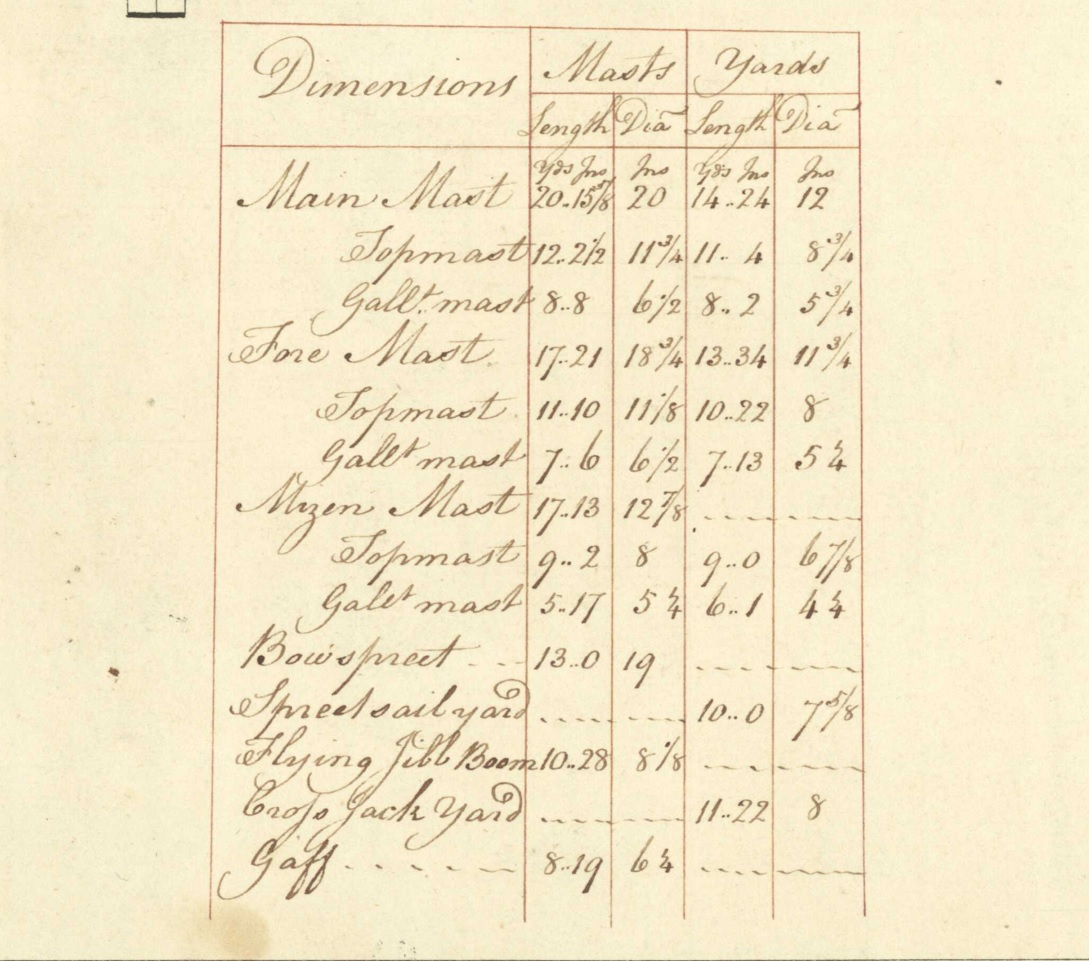 Dimensions Masts Yards
Length Dia Length Dia
Yds Ins Ins Yds Ins Ins
Main Mast 20..15 5/8 20 14..24 12
Topmast 12..2 1/2 11 3/4 11..4 8 3/4
Gallt. mast 8..8 6 1/2 8..2 5 3/4
Fore Mast 17..21 18 3/4 13..34 11 3/4
Topmast 11..10 11 1/8 10..22 8
Gallt mast 7..6 6 1/2 7..13
Mizen Mast 17..13 12 7/8
Topmast 9..2 8 9..0 6 7/8
Gallt mast 5..17 6..1
Bowspreet 13..0 19
Spreetsail yard 10..0 7 5/8
Flying Jibb Boom 10..28 8 1/8
Cross Jack Yard 11..22 8
Gaff 8..19